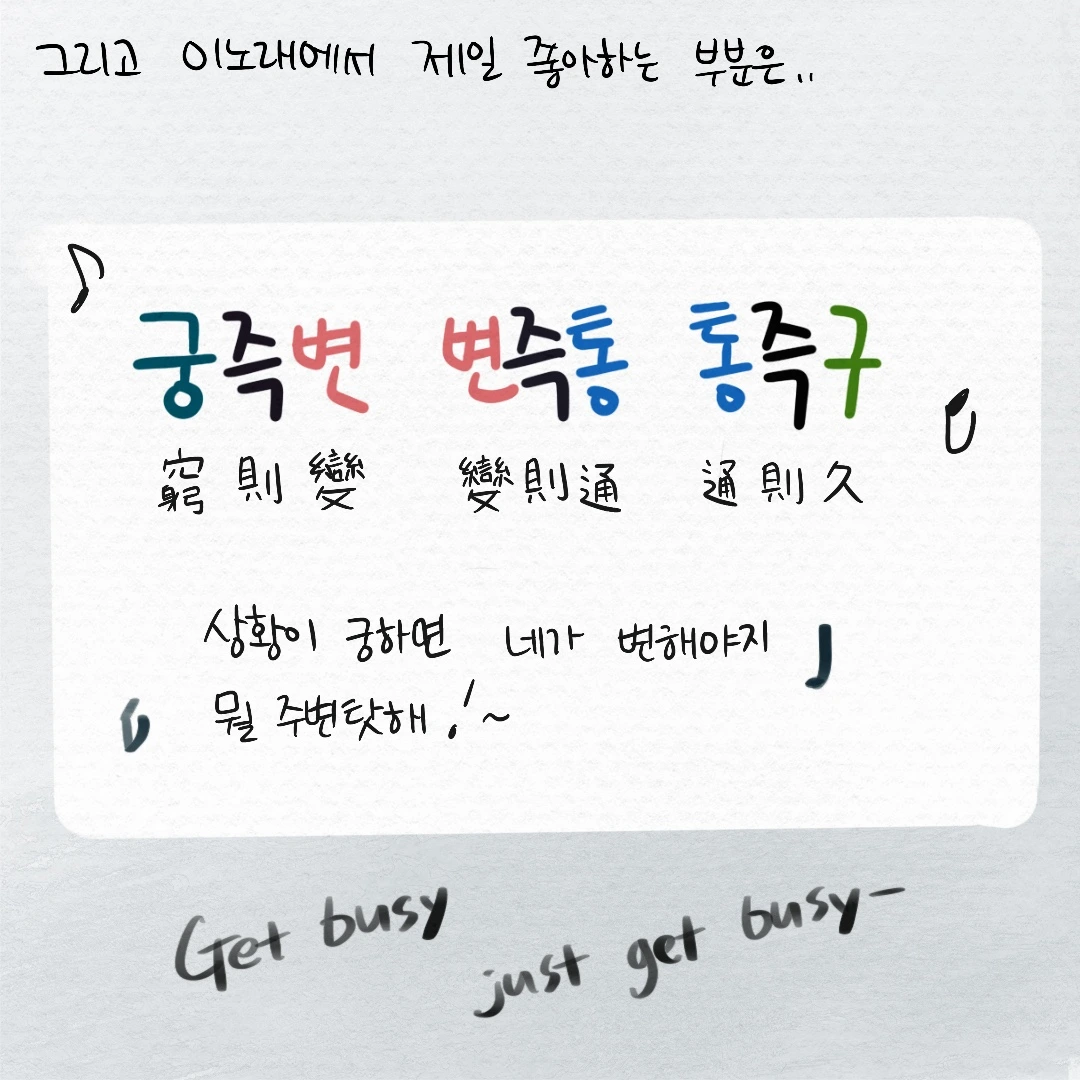 그리고 이노래에서 제일 좋아하는 부분은..
궁즉변 변즉통 통즉구
窮則變 變則通 通則久
상황이 궁하면 네가 변해야지
뭘 주변탓해!~
Get busy
just get busy-